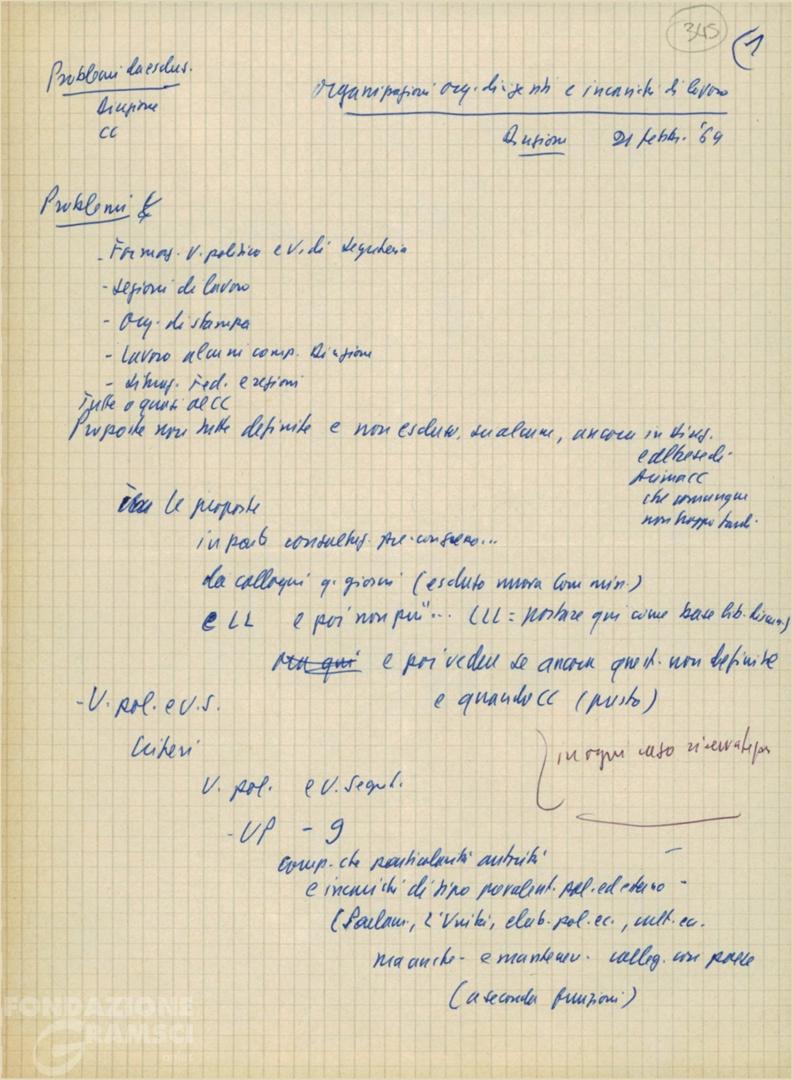 345
1
Problemi da esclus.
Direzione
CC
Organizzazioni org. dirigenti e incarichi di lavoro
Direzione 21 febbr. '69
Problemi
- Formaz. U. politico e U. di Segreteria
- Sezioni di lavoro
- Org. di stampa
- Lavoro alcuni comp. Direzione
- Situaz. Fed. e regioni
Tutte o quasi al CC
Proposte non tutte definite e non escluso, su alcune, ancora in
e altre sedi
prima CC
che comunque
non troppo tardi.
Le proposte
in parte consultaz. pre-congresso...
da colloqui q. giorni (escluso nuova Commiss.)
e LL e poi non più... LLL = portare qui come base lib. discuss.
ma qui e poi vedere se ancora quest. non definite
e quando CC (presto)
- U. pol. e U.S.
Criteri
in ogni caso riservate per
U. pol. e U. Segret.
- UP - 9
comp. che particolarità autorità
e incarichi di tipo prevalent. pol. ed esterno -
(Parlam., L'Unità, elab. pol. ec., cult. ec.
ma anche - e mantener. colleg. con paese
(a seconda funzioni)
FONDAZIONE
GRAMSCI